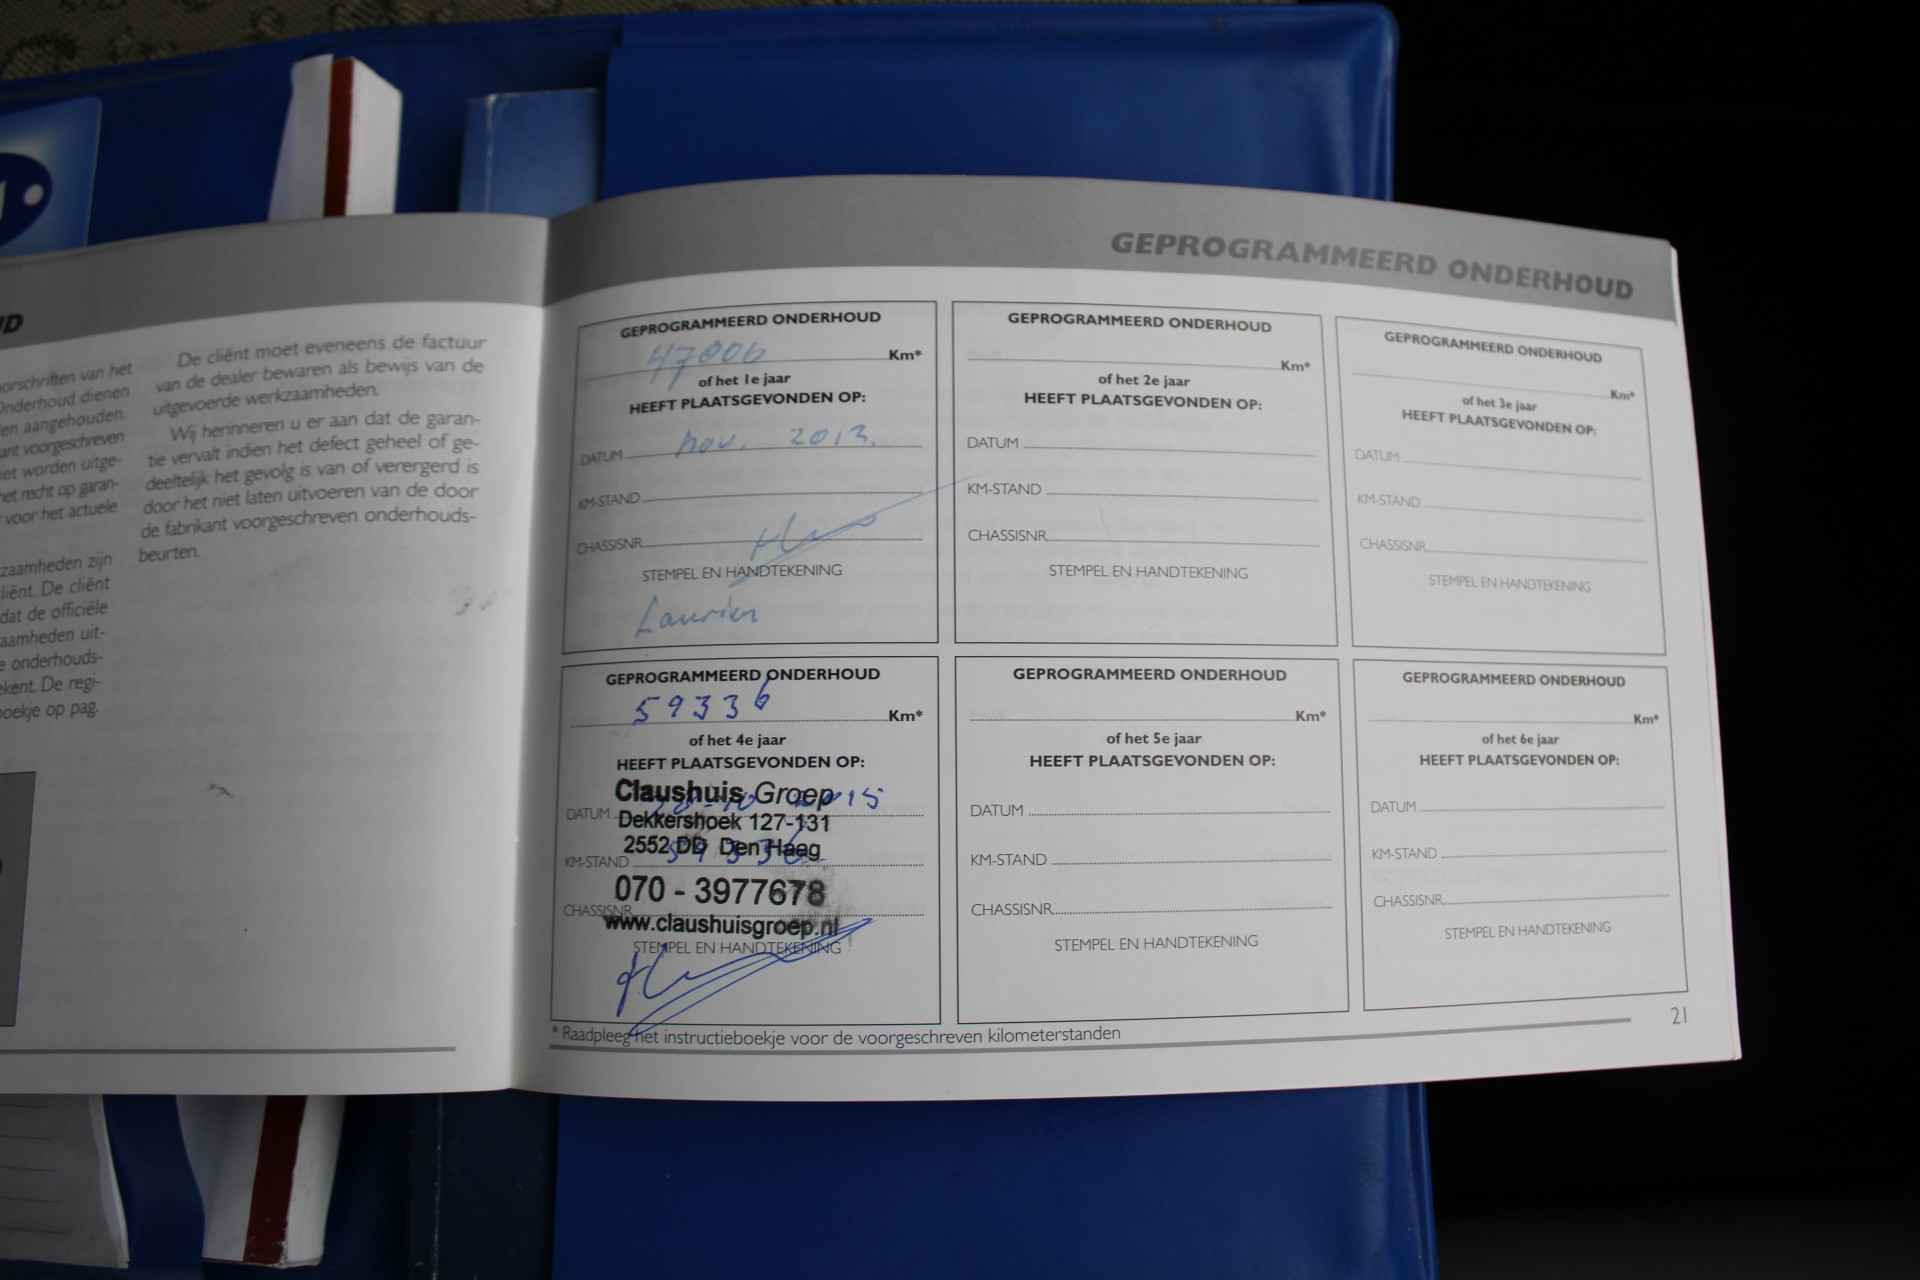 UD
oorschriften van het
Onderhoud dienen
den aangehouden.
kant voorgeschreven
niet worden uitge-
het recht op garan-
voor het actuele
zaamheden zijn
cliënt. De cliënt
dat de officiële
zaamheden uit-
e onderhouds-
ekent. De regi-
boekje op pag.
De cliënt moet eveneens de factuur
van de dealer bewaren als bewijs van de
uitgevoerde werkzaamheden.
Wij herinneren u er aan dat de garan-
tie vervalt indien het defect geheel of ge-
deeltelijk het gevolg is van of verergerd is
door het niet laten uitvoeren van de door
de fabrikant voorgeschreven onderhouds-
beurten.
GEPROGRAMMEERD ONDERHOUD
GEPROGRAMMEERD ONDERHOUD
47000 Km*
of het 1e jaar
HEEFT PLAATSGEVONDEN OP:
DATUM nov. 2013.
KM-STAND
CHASSISNR.
STEMPEL EN HANDTEKENING
GEPROGRAMMEERD ONDERHOUD
Km*
of het 2e jaar
HEEFT PLAATSGEVONDEN OP:
DATUM
KM-STAND
CHASSISNR.
STEMPEL EN HANDTEKENING
GEPROGRAMMEERD ONDERHOUD
Km*
of het 3e jaar
HEEFT PLAATSGEVONDEN OP:
DATUM
KM-STAND
CHASSISNR.
STEMPEL EN HANDTEKENING
GEPROGRAMMEERD ONDERHOUD
59336 Km*
of het 4e jaar
HEEFT PLAATSGEVONDEN OP:
Claushuis Groep
DATUM 28-10 2015
Dekkershoek 127-131
2552 DD Den Haag
KM-STAND 59336
070 - 3977678
CHASSISNR.
www.claushuisgroep.nl
STEMPEL EN HANDTEKENING
GEPROGRAMMEERD ONDERHOUD
Km*
of het 5e jaar
HEEFT PLAATSGEVONDEN OP:
DATUM
KM-STAND
CHASSISNR.
STEMPEL EN HANDTEKENING
GEPROGRAMMEERD ONDERHOUD
Km*
of het 6e jaar
HEEFT PLAATSGEVONDEN OP:
DATUM
KM-STAND
CHASSISNR.
STEMPEL EN HANDTEKENING
* Raadpleeg het instructieboekje voor de voorgeschreven kilometerstanden
21